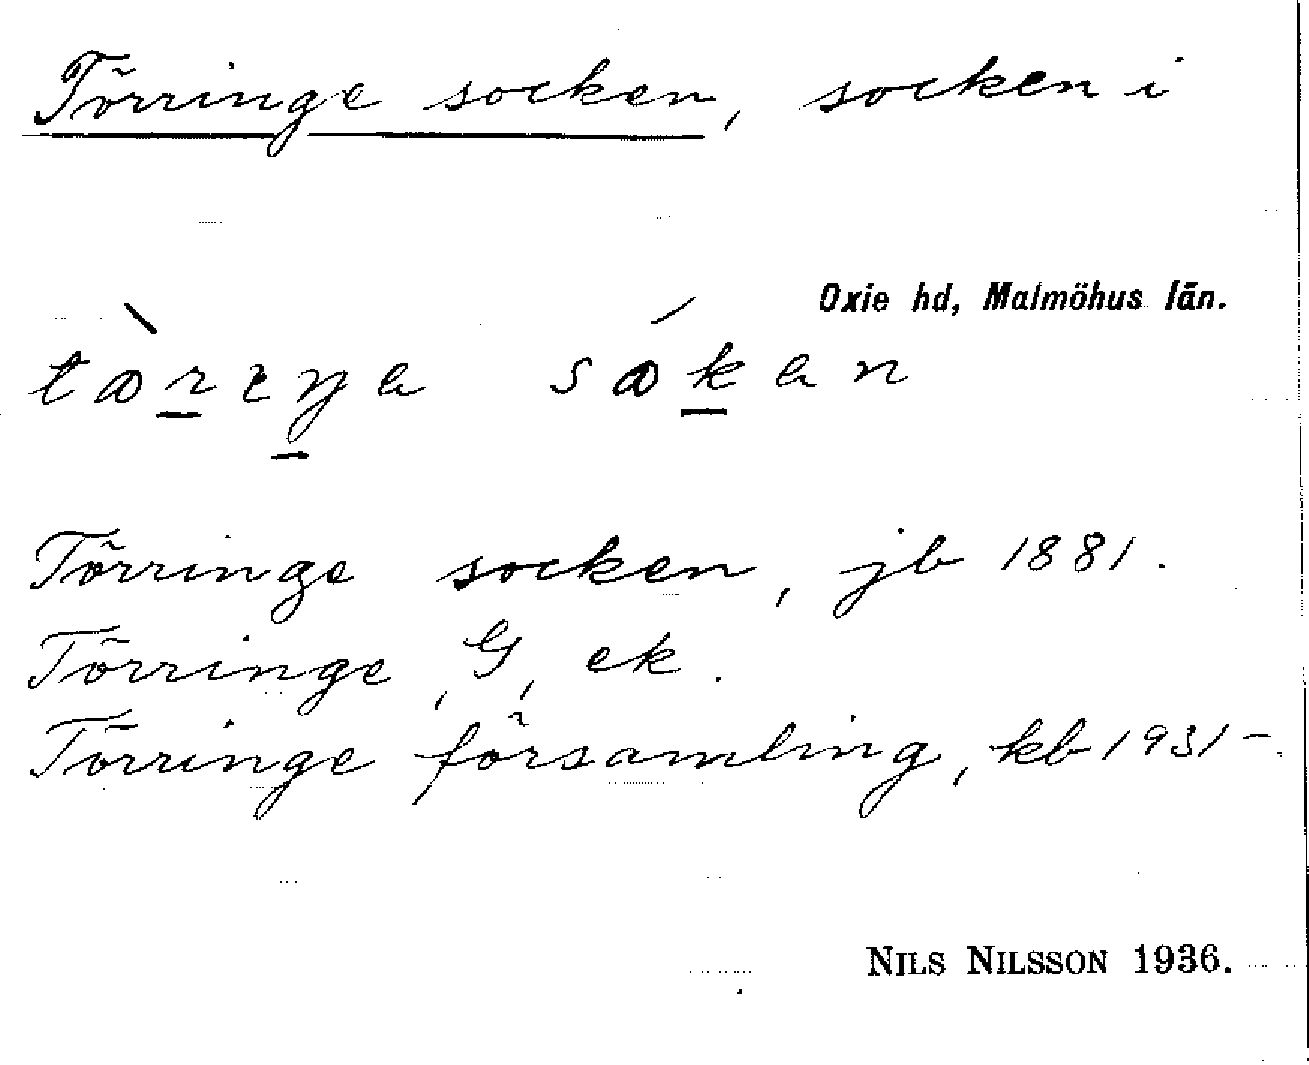 Törringe socken, socken i
Oxie hd, Malmöhus län.
Törringe socken, jb 1881.
Törringe, G, ek.
Törringe församling, kb 1931-.
NILS NILSSON 1936.